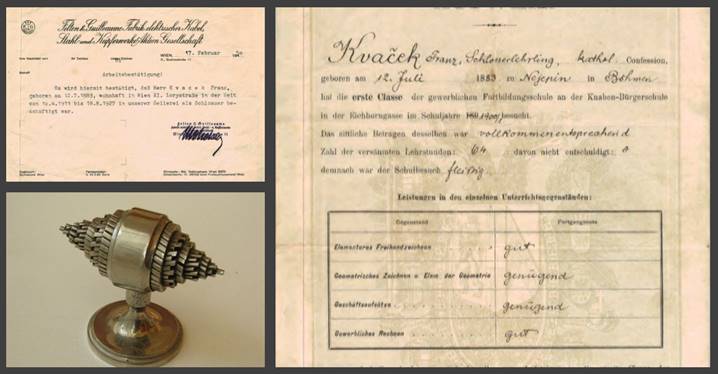 Felten & Guilleaume Fabrik elektrischer Kabel,
Stahl- und Kupferwerke Aktien Gesellschaft
WIEN, 17. Februar
Arbeitsbestätigung!
Es wird hiermit bestätigt, daß Herr K v a c e k Franz,
geboren am 12.7.1883, wohnhaft in Wien XI. in der Zeit
von bis in unserer Seilerei als Schlosser be-
schäftigt war.
Kvaček Franz, Schlosserlehrling, kathol. Confession,
geboren am 12. Juli 1883 zu in Böhmen
hat die erste Classe der gewerblichen Fortbildungsschule an der Knaben-Bürgerschule
in der Eichhorngasse im Schuljahre besucht.
Das sittliche Betragen desselben war vollkommen entsprechend
Zahl der versäumten Lehrstunden: 64 davon nicht entschuldigt: 0
demnach war der Schulbesuch fleißig.
Leistungen in den einzelnen Unterrichtsgegenständen:
Gegenstand Fortgangsnote
Elementares Freihandzeichnen gut
Geometrisches Zeichnen u. Elem. der Geometrie genügend
Geschäftsaufsätze genügend
Gewerbliches Rechnen gut